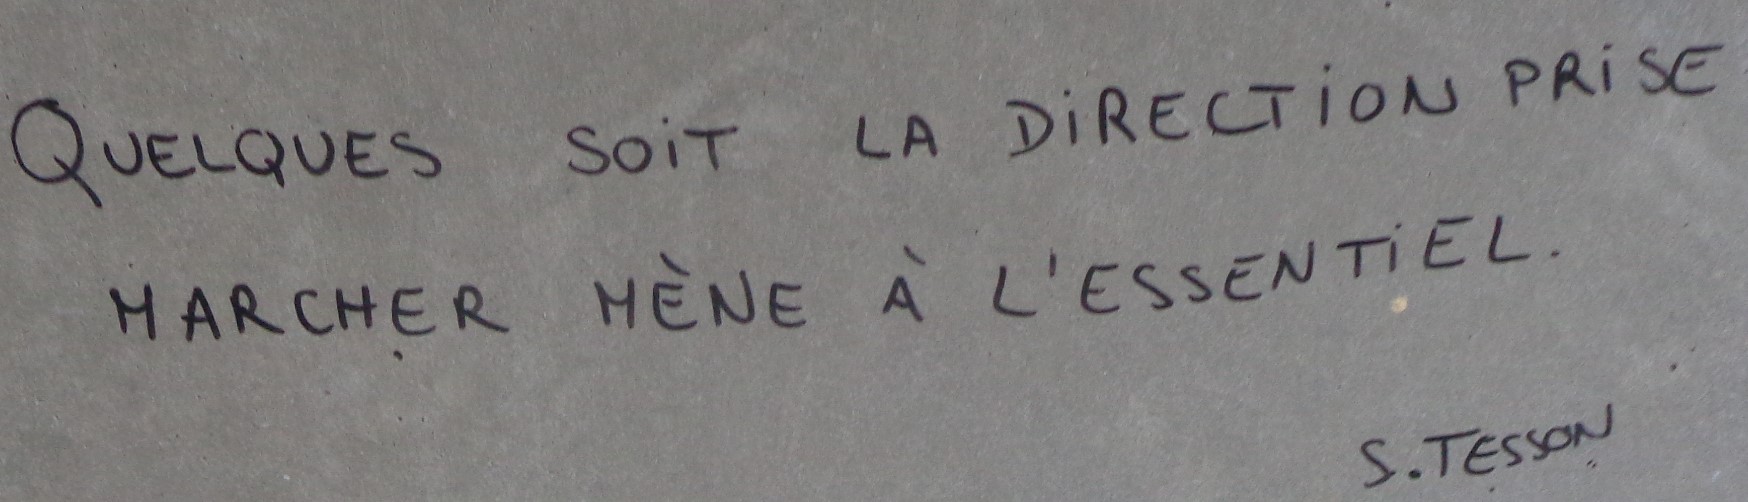 QUELQUES SOIT LA DIRECTION PRISE
MARCHER MÈNE À L'ESSENTIEL.
S. TESSON